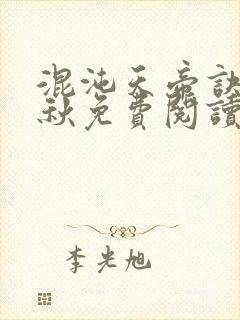 混沌天帝訣
秋免費閱讀
李光旭